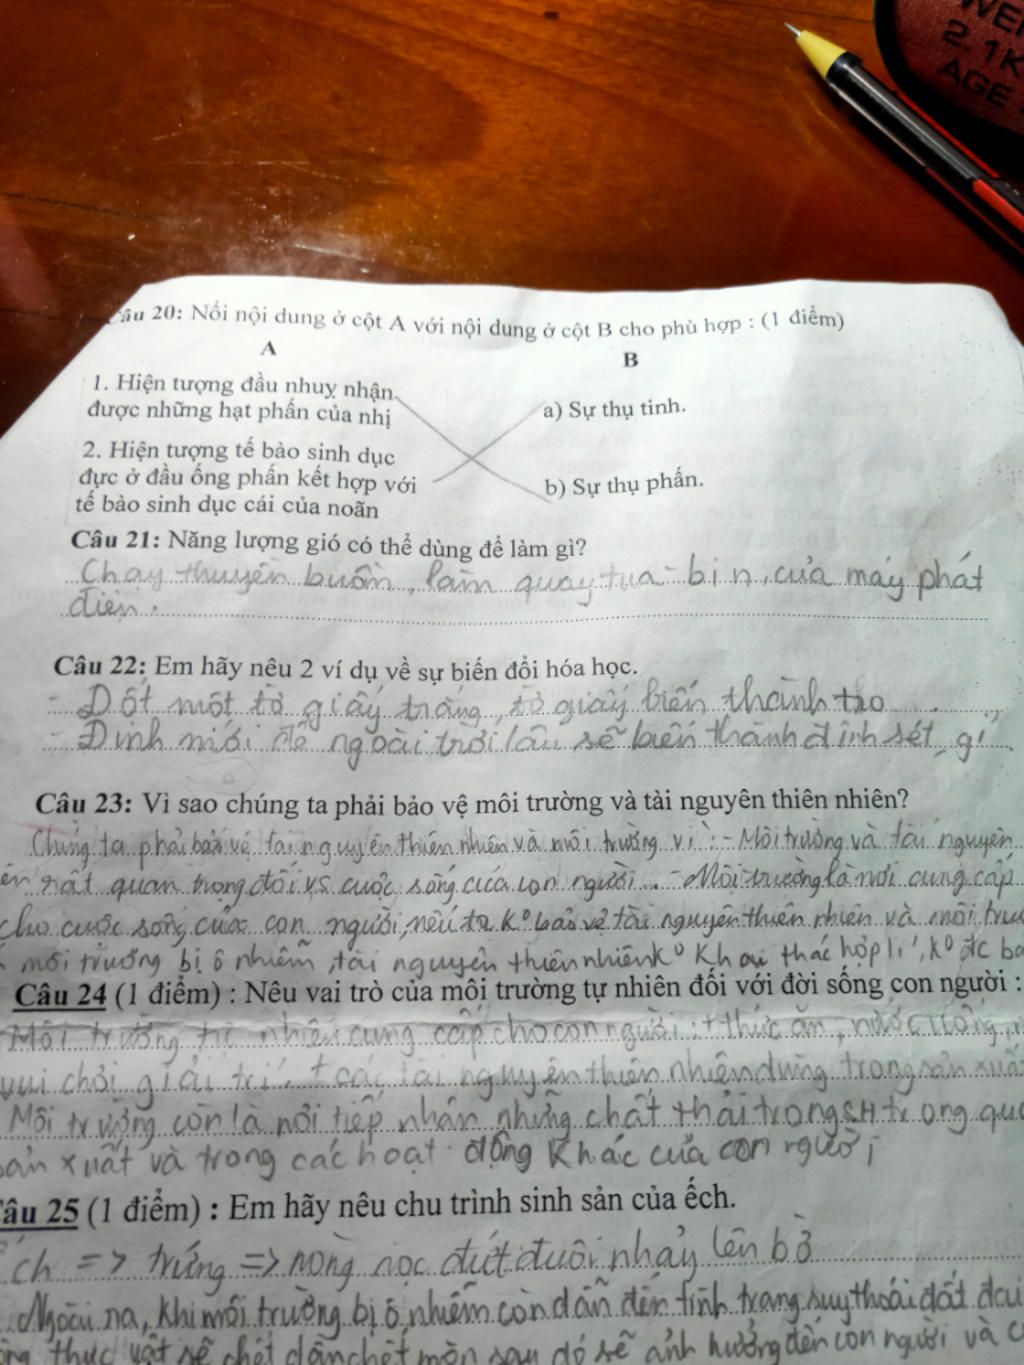 WEI
2.1K
AGE
Câu 20: Nối nội dung ở cột A với nội dung ở cột B cho phù hợp : (1 điểm)
A
B
1. Hiện tượng đầu nhuỵ nhận
được những hạt phấn của nhị
a) Sự thụ tinh.
2. Hiện tượng tế bào sinh dục
đực ở đầu ống phấn kết hợp với
tế bào sinh dục cái của noãn
b) Sự thụ phấn.
Câu 21: Năng lượng gió có thể dùng để làm gì?
Chạy thuyền buồm, làm quay tua-bin, của máy phát
điện.
Câu 22: Em hãy nêu 2 ví dụ về sự biến đổi hóa học.
- Đốt một tờ giấy trắng, tờ giấy biến thành tro
- Đinh mới để ngoài trời lâu sẽ biến thành đinh sét, gỉ
Câu 23: Vì sao chúng ta phải bảo vệ môi trường và tài nguyên thiên nhiên?
Chúng ta phải bảo vệ tài nguyên thiên nhiên và môi trường vì: - Môi trường và tài nguyên
rất quan trọng đối vs cuộc sống của con người. - Môi trường là nơi cung cấp
cho cuộc sống của con người, nếu ta k° bảo vệ tài nguyên thiên nhiên và môi
môi trường bị ô nhiễm, tài nguyên thiên nhiên k° khai thác hợp lí, k° đc
Câu 24 (1 điểm) : Nêu vai trò của môi trường tự nhiên đối với đời sống con người :
Môi trường tự nhiên cung cấp cho con người: + thức ăn, nước uống,
vui chơi giải trí, + các tài nguyên thiên nhiên dùng trong sản
Môi trường còn là nơi tiếp nhận những chất thải trong SH trong
xuất và trong các hoạt động khác của con người
Câu 25 (1 điểm) : Em hãy nêu chu trình sinh sản của ếch.
Ếch => trứng => nòng nọc đứt đuôi nhảy lên bờ
Ngoài ra, khi môi trường bị ô nhiễm còn dẫn đến tình trạng suy thoái đất đai
thực vật sẽ chết dần chết mòn sau đó sẽ ảnh hưởng đến con người và